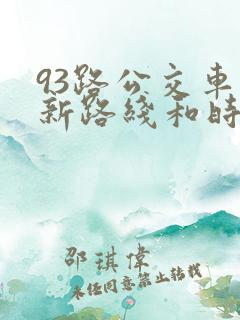 93路公交车
新路线和时
邵琪伟
未经同意禁止转载